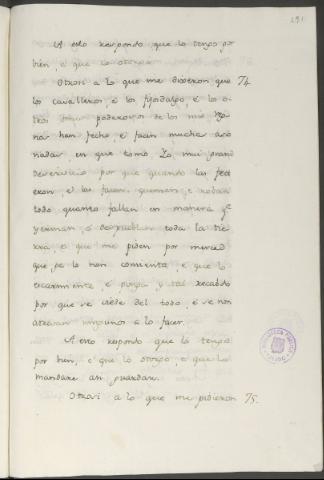 291
A esto respondo que lo tengo por
bien, e que lo otorgo.
Otrosi a lo que me dixeron que 74
los cavalleros, e los fijosdalgo, e los o-
tros poderosos de los mis Rg-
nos han fecho, e facen muchas aso
nadas, en que tomo Yo mui grand
deservicio por que quando las fici
eron, e las facen, queman, e roban
todo quanto fallan en manera qe
yerman, e despueblan toda la tie
rra, e que me piden por merced
que ge lo non consienta, e que lo
escarmiente, e ponga y tal recabdo
por que se vede del todo, e se non
atrevan ningunos a lo facer.
A esto respondo que lo tengo
por bien, e que lo otorgo, e que lo
mandare asi guardar.
Otrosi a lo que me pidieron 75.